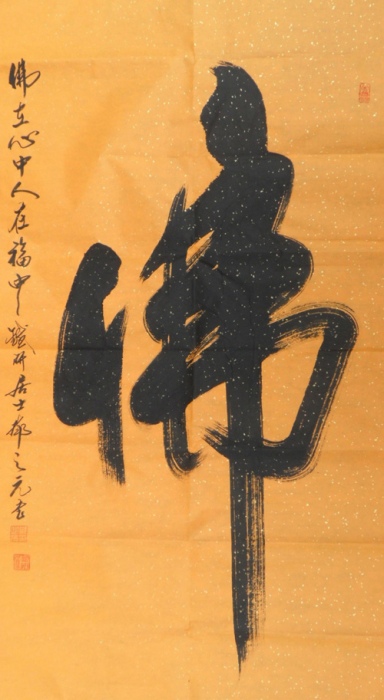 佛
佛在心中人在福中 研居士 之元书